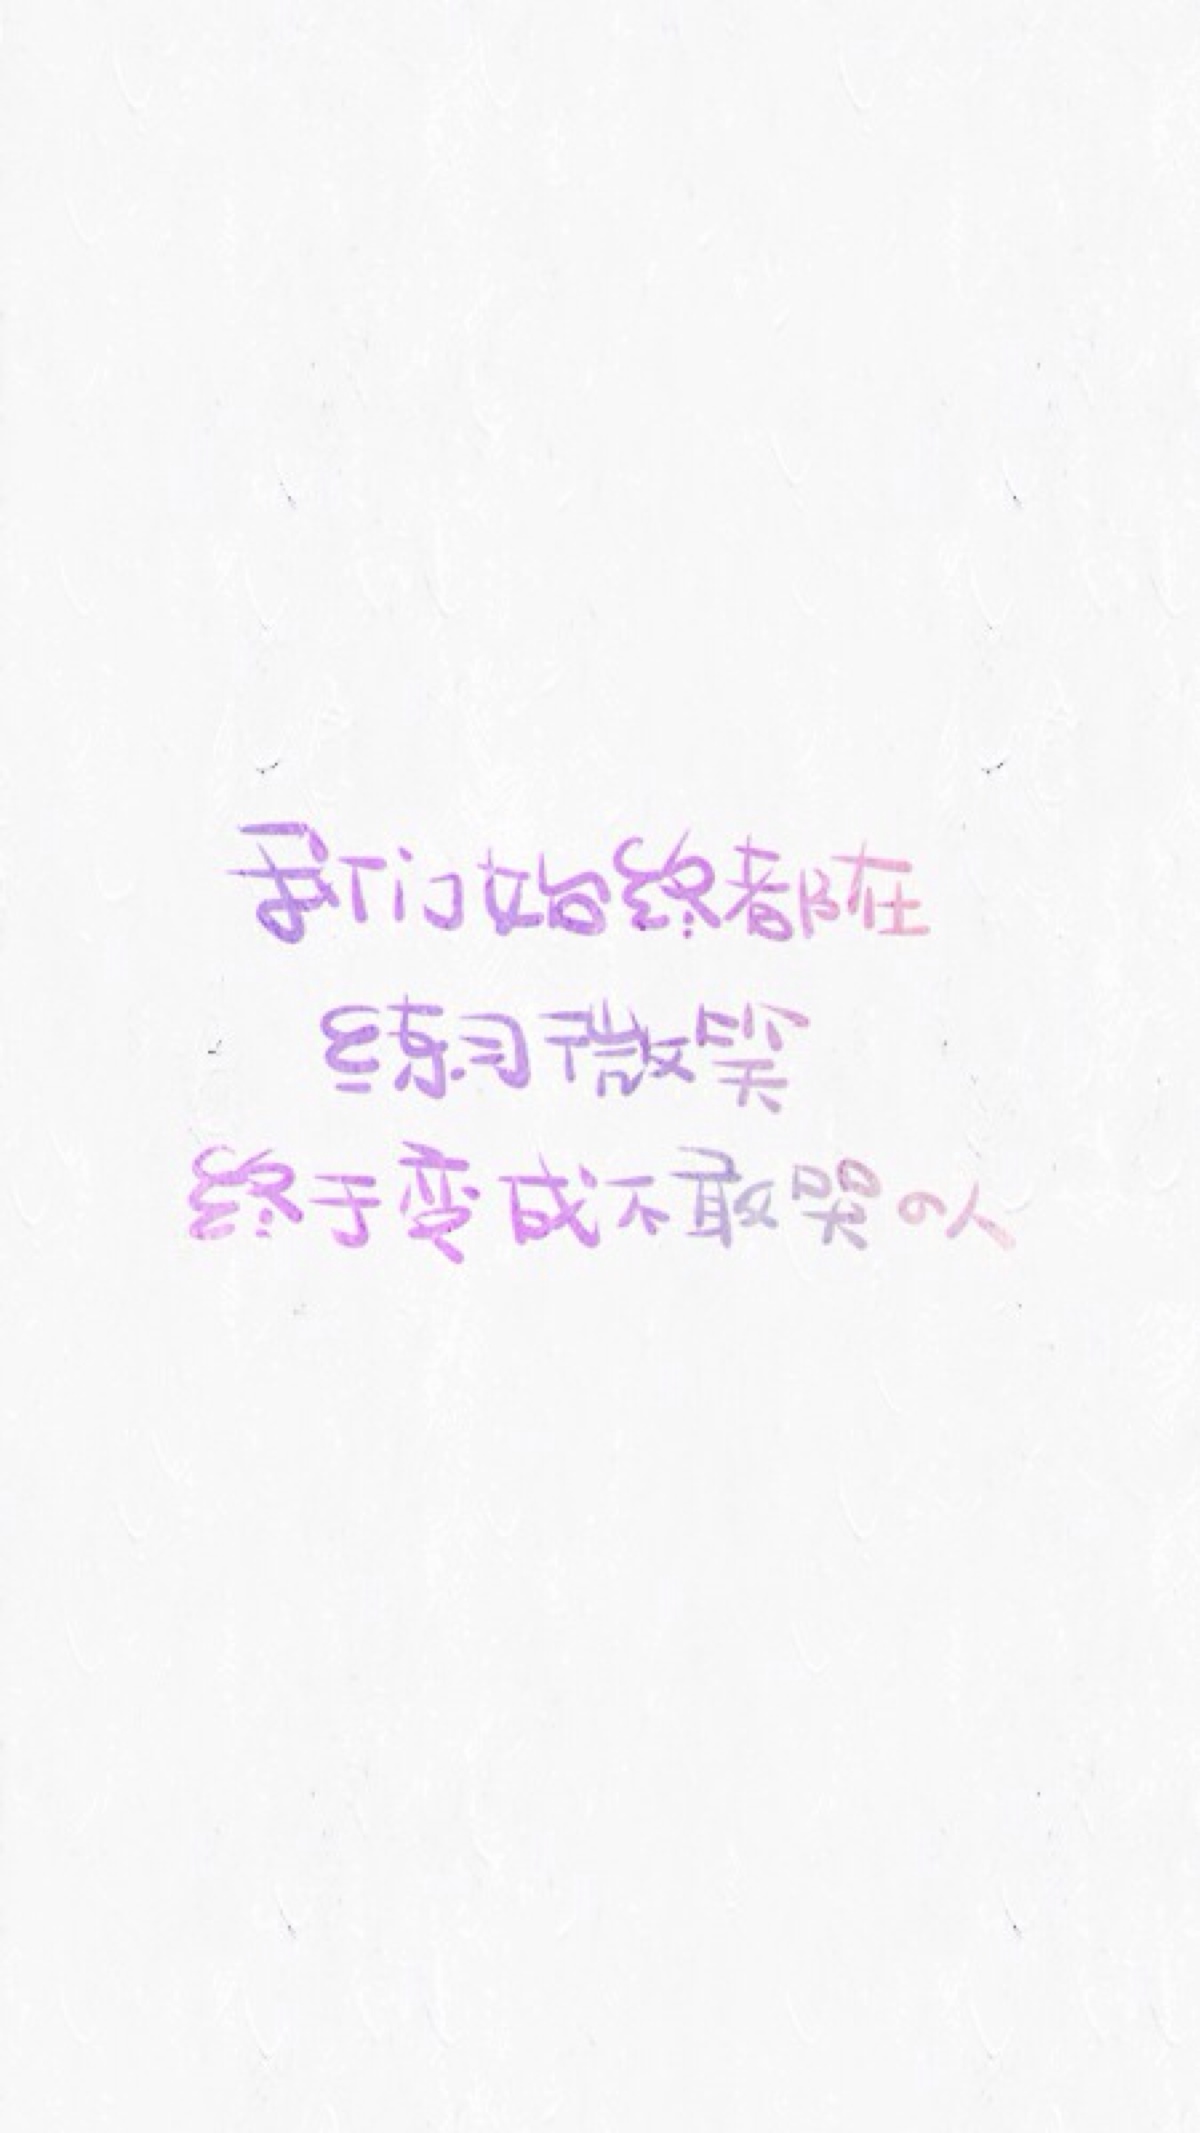 我们始终都在
练习微笑
终于变成不敢哭的人